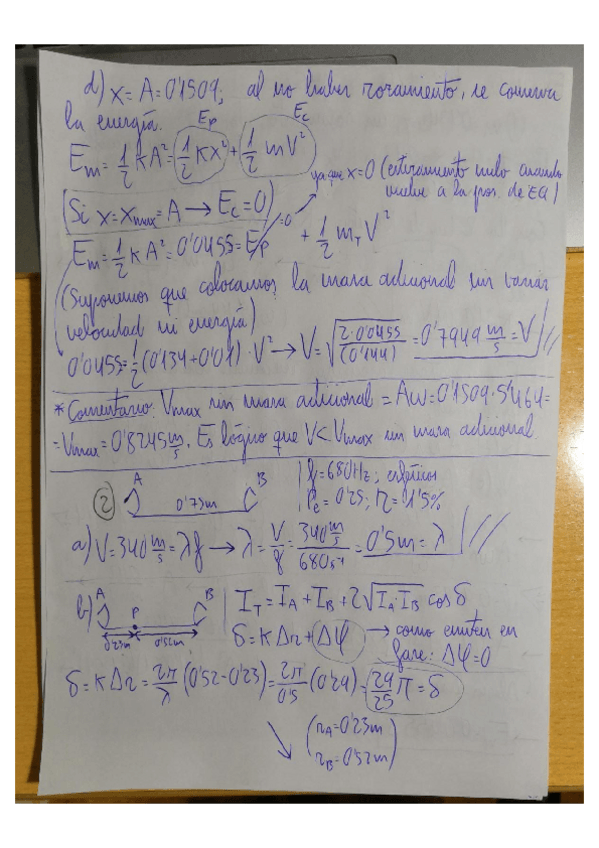 d) x = A = 0'1509; al no haber rozamiento, se conserva
la energía. Ep Ec
Em = 1/2 KA² = 1/2 Kx² + 1/2 mV²
ya que x=0 (estiramiento nulo cuando
vuelve a la pos. de EQ)
(Si x = xmax = A → Ec = 0)
Em = 1/2 KA² = 0'0455 = Ep =0 + 1/2 mT V²
(Suponemos que colocamos la masa adicional sin variar
velocidad ni energía)
0'0455 = 1/2 (0'134 + 0'01) · V² → V = √(2·0'0455/(0'144)) = 0'7949 m/s = V
* Comentario: Vmax sin masa adicional = Aω = 0'1509·5'464 =
= Vmax = 0'8245 m/s. Es lógico que V < Vmax sin masa adicional
2 A B 0'75m
f = 680Hz; esféricos
Pe = 0'25; η = 1'5%
a) V = 340 m/s = λf → λ = V/f = 340 m/s / 680 s⁻¹ = 0'5m = λ
b) A P B 0'23m 0'52m
IT = IA + IB + 2√(IA·IB) cos δ
δ = KΔr + Δφ → como emiten en
fase: Δφ = 0
δ = KΔr = 2π/λ (0'52 - 0'23) = 2π/0'5 (0'29) = 29/25 π = δ
(rA = 0'23m
rB = 0'52m)